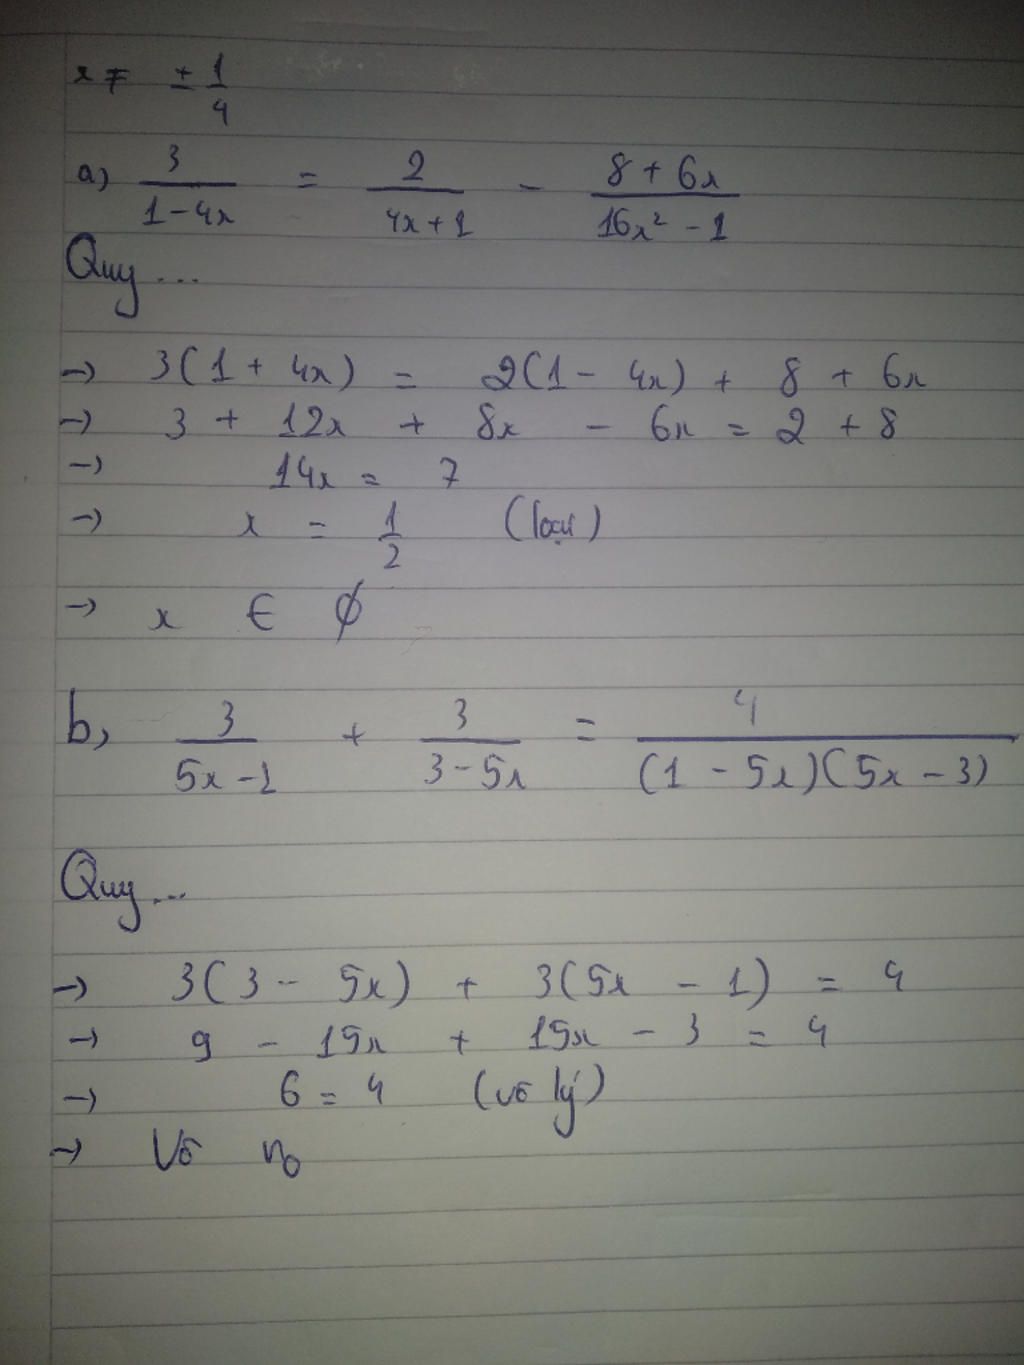 x ≠ ± 1/4
a) 3/(1-4x) = 2/(4x+1) - (8+6x)/(16x² - 1)
Quy...
→ 3(1 + 4x) = 2(1 - 4x) + 8 + 6x
→ 3 + 12x + 8x - 6x = 2 + 8
→ 14x = 7
→ x = 1/2 (loại)
→ x ∈ ∅
b, 3/(5x-1) + 3/(3-5x) = 4/((1 - 5x)(5x - 3))
Quy...
→ 3(3 - 5x) + 3(5x - 1) = 4
→ 9 - 15x + 15x - 3 = 4
→ 6 = 4 (vô lý)
→ Vô no